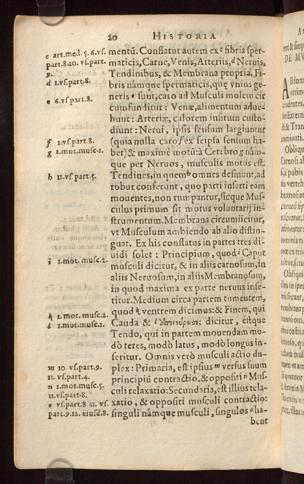 20 HISTORIA
e art.med.5.6.vs.
part.8.40.vs.part.
9.
d 1.vs.part.8.
e 6.vs part.8.
f 1.vs.part.5
g 1.mot.musc.1.
h 12.vs part.5.
i 1.mot.musc.2.
k 1.mot.musc.2.
l 1.mot.musc.2.
m 10 vs.part.
11.vs.part.4.
n 1.mot.musc.5.
11.vs.part.8.
o vs.part.8. 11. vs.
part.9.12. eiusd.8.
mentũ. Conſtatur autem ex e fibris ſper-
maticis, Carne, Venis, Arteriis, d Neruis,
Tendinibus, & Membrana propria. Fi-
bris nãmque ſpermaticis, quę vnius ge-
neris e ſunt, caro ad Muſculi molem cir
cumfunditur: Venæ, alimentum adue-
hunt: Arteriæ, calorem inſitum cuſto-
diunt: Nerui, ipſis ſenſum largiuntur
(quia nulla caro f ex ſeipſa ſenſum ha-
bet) & maximè motũ à Cerebro g nãm-
que per Neruos, muſculis motus eſt.
Tendines, in quem h omnes deſinunt, ad
robur conferunt, quo parti inſerti eam
mouentes, non rumpantur, ſicque Muſ-
culus primum ſit motus voluntarij in-
ſtrumentum. Membrana circumſcitur,
vt Muſculum ambiendo ab alio diſtin-
guat. Ex his conſtatis in partes tres di-
uidi ſolet: Principium, quod i Caput
muſculi dicitur, & in aliis carnoſam, in
aliis Neruoſam, in aliis Membranoſam,
in quod maxima ex parte neruus inſe-
ritur. Medium circa partem tumentem,
quod k ventrem dicimus: & Finem, qui
Cauda & l dicitur, eſtque
Tendo, qui in partem mouendam mo-
dò teres, modò latus, modò longus in-
ſeritur. Omnis verò muſculi actio du-
plex: Primaria, eſt ipſius m verſus ſuum
principiũ contractio, & oppoſiti n Muſ-
culi relaxatio: Secundaria, eſt illius rela-
xatio, & oppoſiti muſculi contractio:
ſinguli nãmque muſculi, ſingulos o ha-
bent